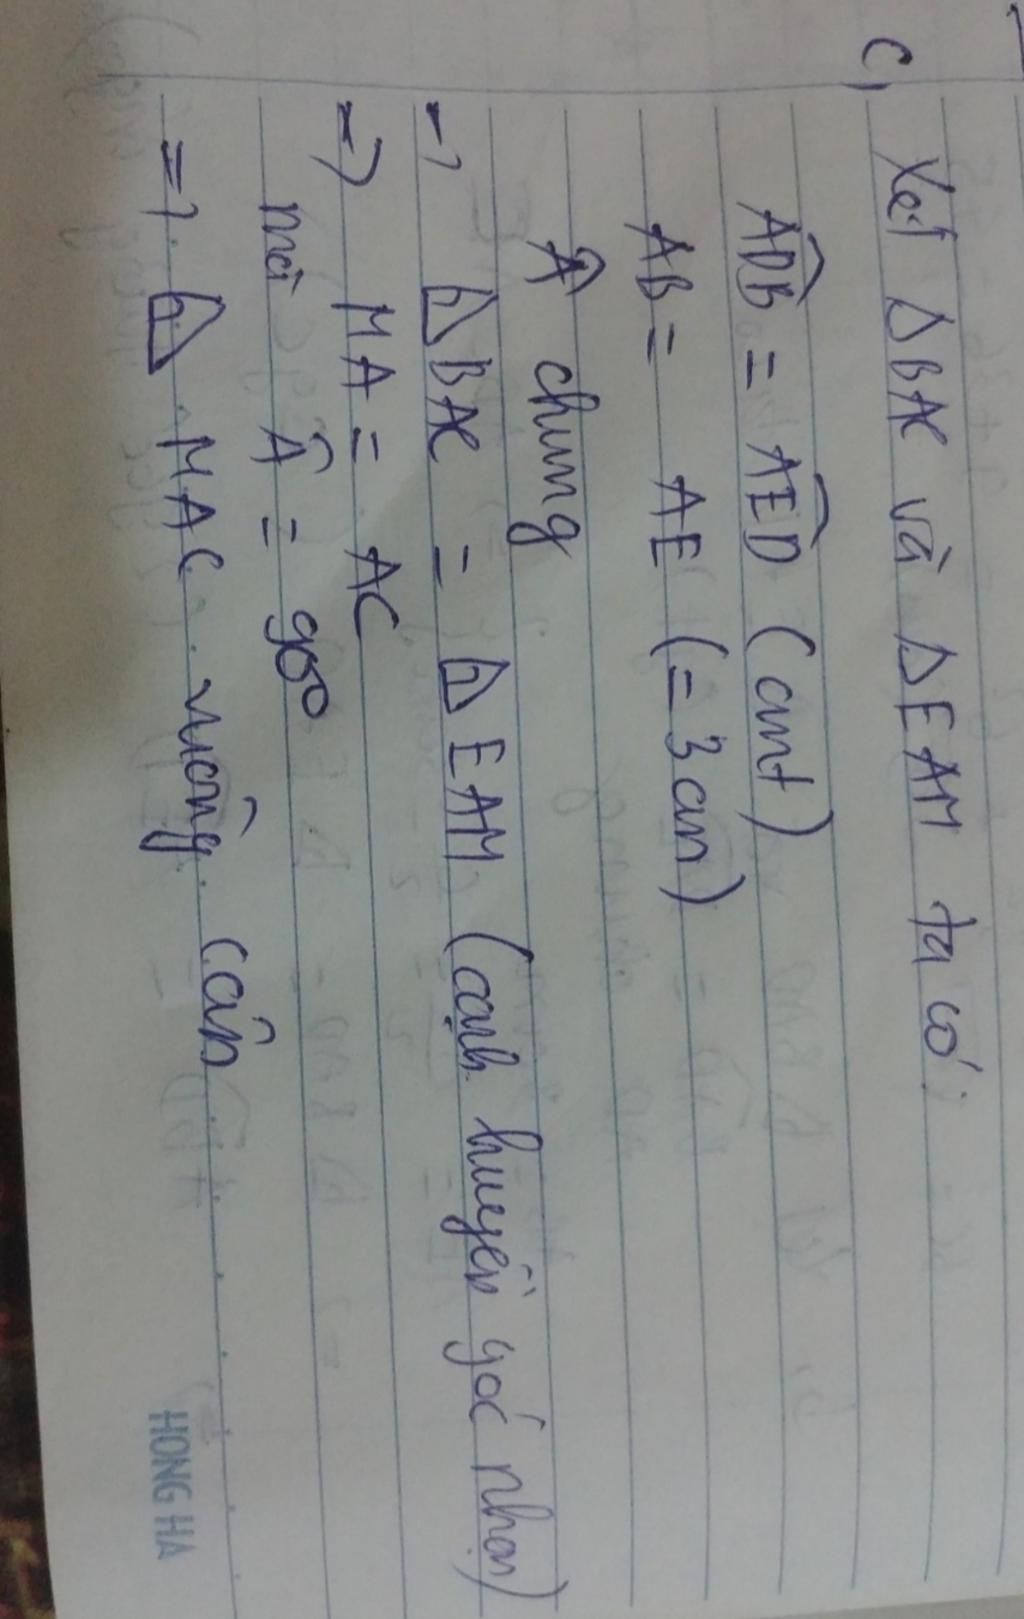 c, Xét ΔBAC và ΔEAM ta có:
ADB̂ = AED̂ (cmt)
AB = AE (= 3cm)
Â chung
=> ⊿BAC = ⊿EAM (cạnh huyền góc nhọn)
=> MA = AC
mà Â = 90°
=> ⊿ MAC vuông cân
HONG HA